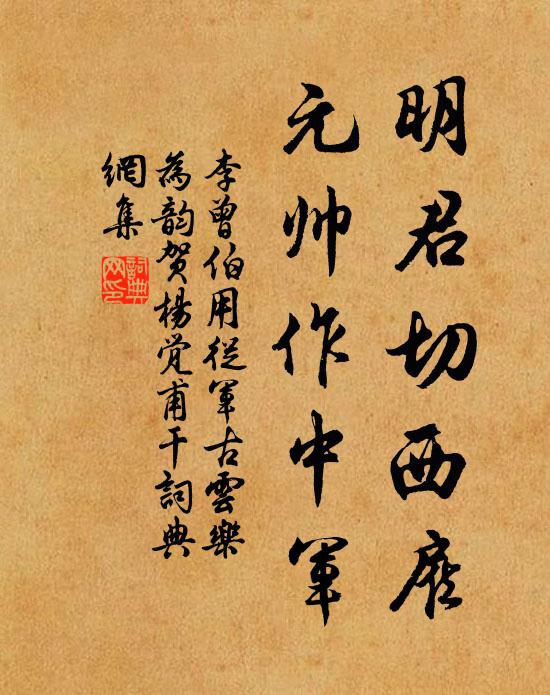 明君切西扆
元帅作中軍
李曾伯用從軍古雲樂
為韵贺楊觉甫干詞典
網集
詞典
网印